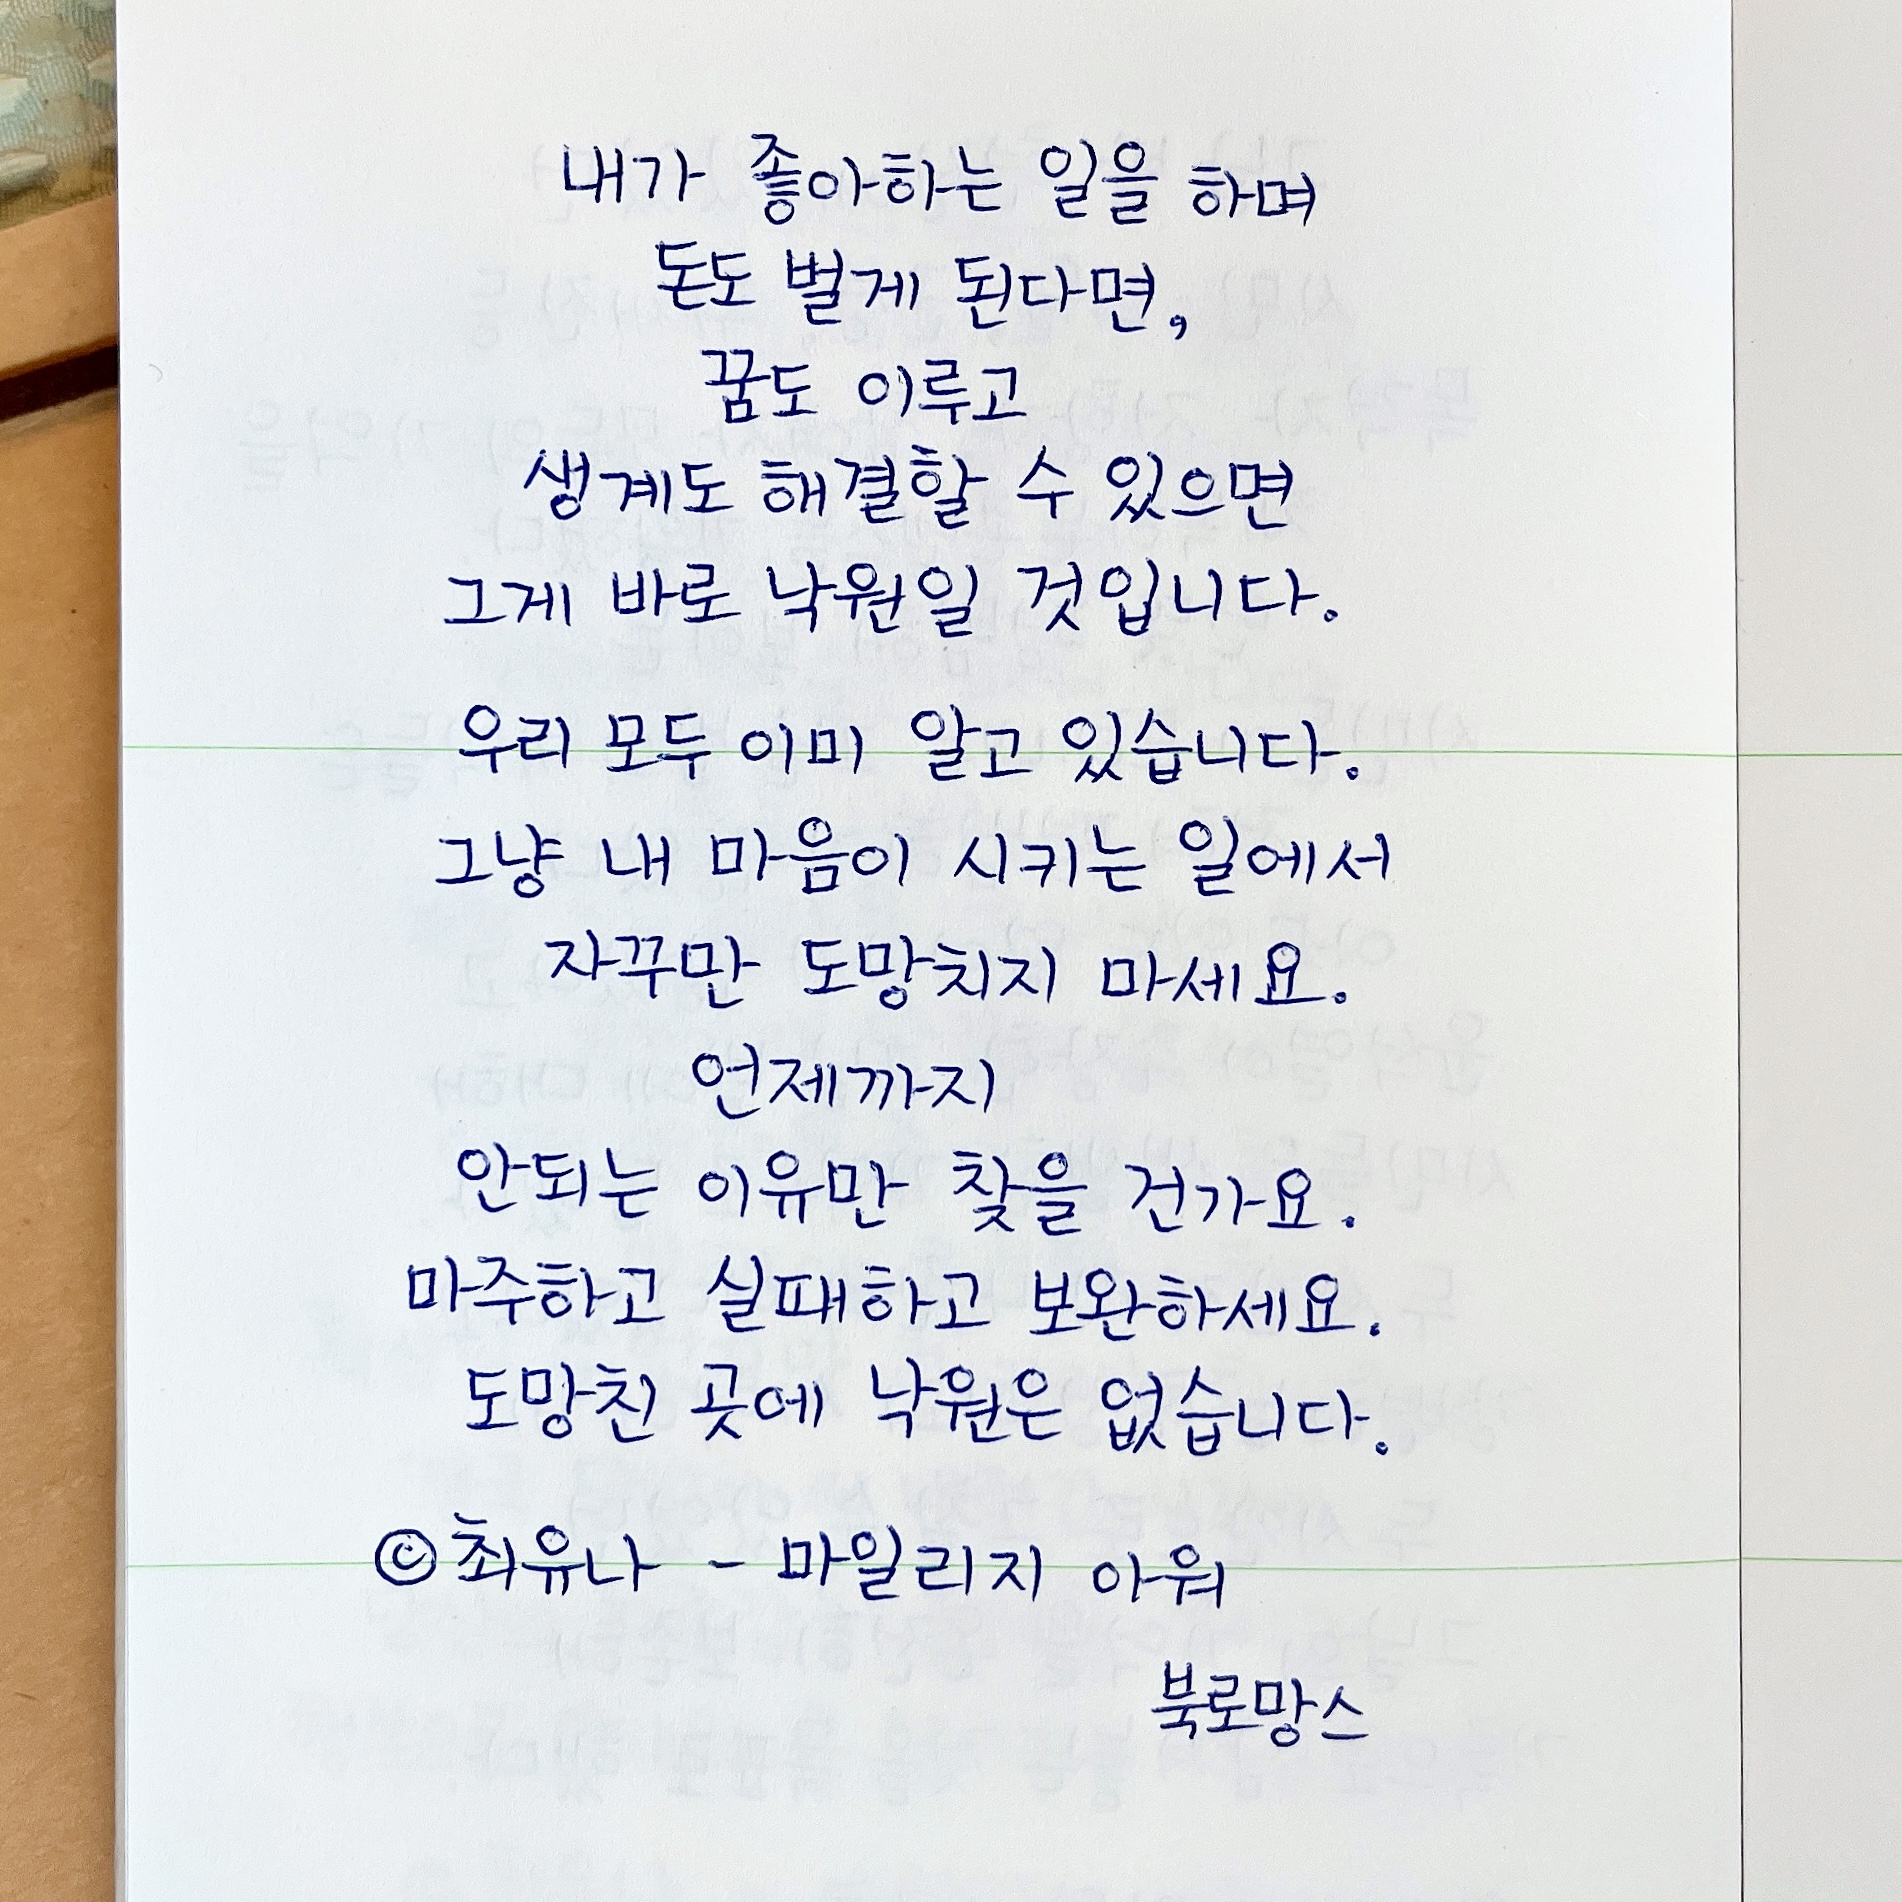 내가 좋아하는 일을 하며
돈도 벌게 된다면,
꿈도 이루고
생계도 해결할 수 있으면
그게 바로 낙원일 것입니다.
우리 모두 이미 알고 있습니다.
그냥 내 마음이 시키는 일에서
자꾸만 도망치지 마세요.
언제까지
안되는 이유만 찾을 건가요.
마주하고 실패하고 보완하세요.
도망친 곳에 낙원은 없습니다.
© 최유나 - 마일리지 아워
북로망스